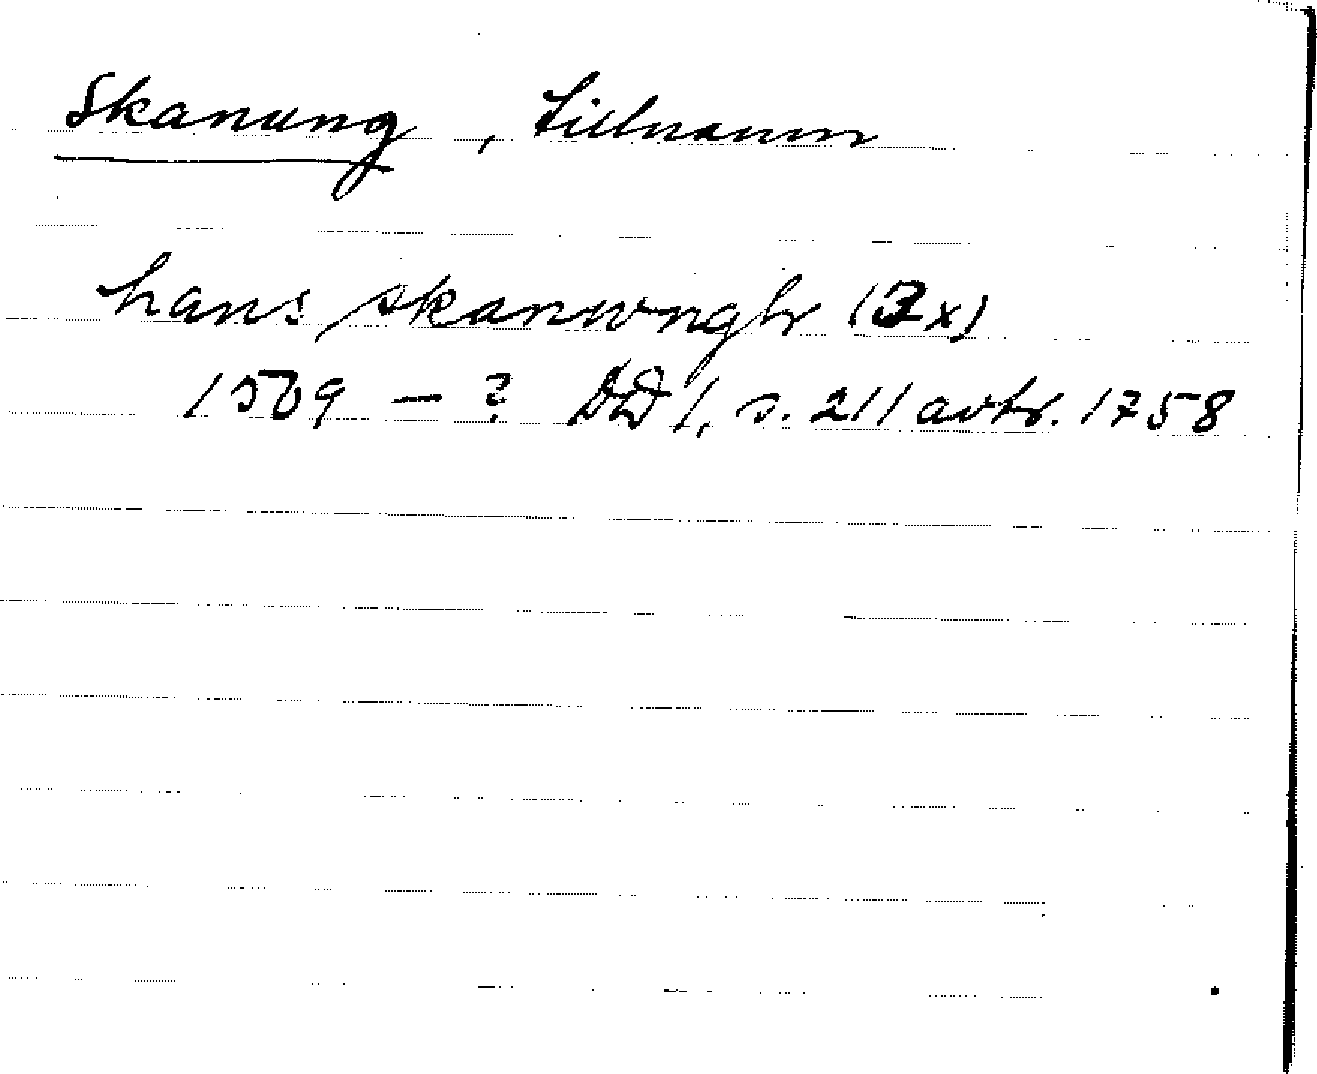 Skanung, tillnamn
hans skanwnghr (3x)
1569 – ? DD 1, s. 211 avtr. 1758